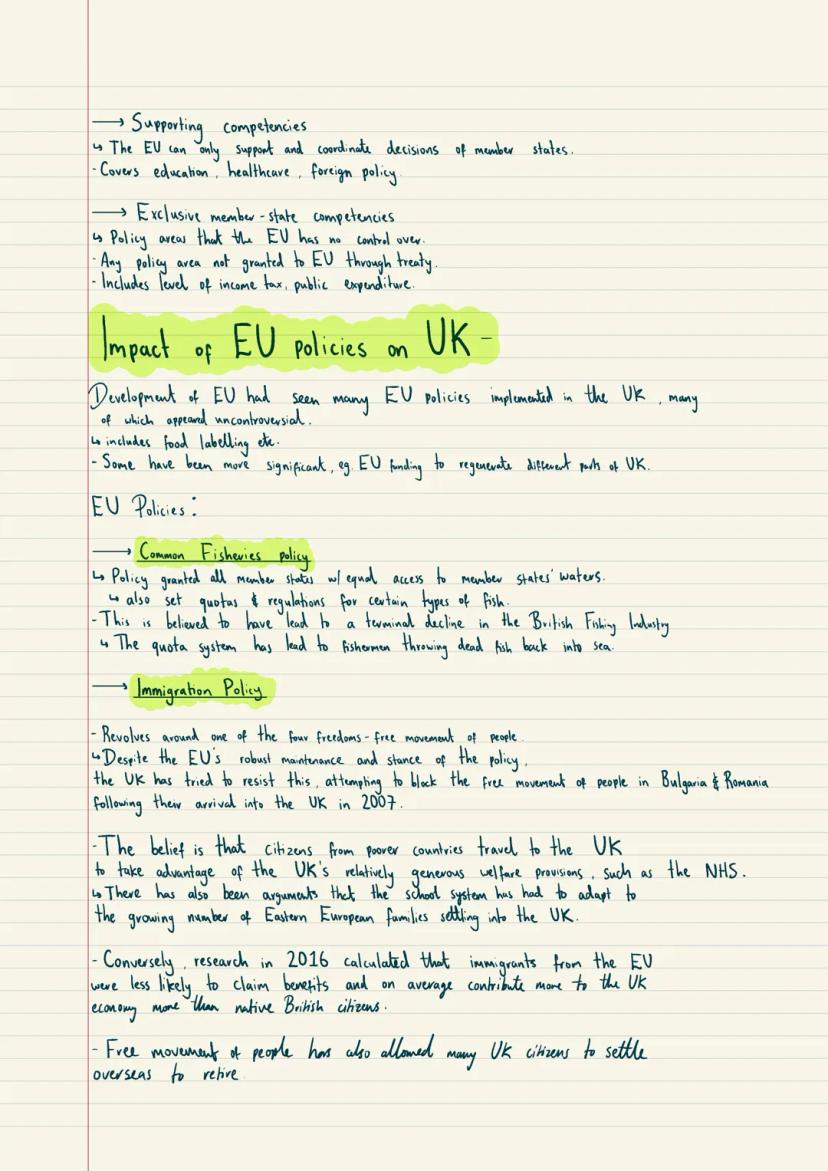 ⟶ Supporting competencies
↳ The EU can only support and coordinate decisions of member states.
- Covers education, healthcare, foreign policy.
⟶ Exclusive member-state competencies
↳ Policy areas that the EU has no control over.
- Any policy area not granted to EU through treaty.
- Includes level of income tax, public expenditure.
Impact of EU policies on UK -
Development of EU had seen many EU policies implemented in the UK, many
of which appeared uncontroversial.
↳ includes food labelling etc.
- Some have been more significant, eg. EU funding to regenerate different parts of UK.
EU Policies:
⟶ Common Fisheries policy
↳ Policy granted all member states w/ equal access to member states' waters.
↳ also set quotas & regulations for certain types of fish.
- This is believed to have lead to a terminal decline in the British Fishing Industry
↳ The quota system has lead to fishermen throwing dead fish back into sea.
⟶ Immigration Policy
- Revolves around one of the four freedoms - free movement of people.
↳ Despite the EU's robust maintenance and stance of the policy,
the UK has tried to resist this, attempting to block the free movement of people in Bulgaria & Romania
following their arrival into the UK in 2007.
- The belief is that citizens from poorer countries travel to the UK
to take advantage of the UK's relatively generous welfare provisions, such as the NHS.
↳ There has also been arguments that the school system has had to adapt to
the growing number of Eastern European families settling into the UK.
- Conversely, research in 2016 calculated that immigrants from the EU
were less likely to claim benefits and on average contribute more to the UK
economy more than native British citizens.
- Free movement of people has also allowed many UK citizens to settle
overseas to retire.